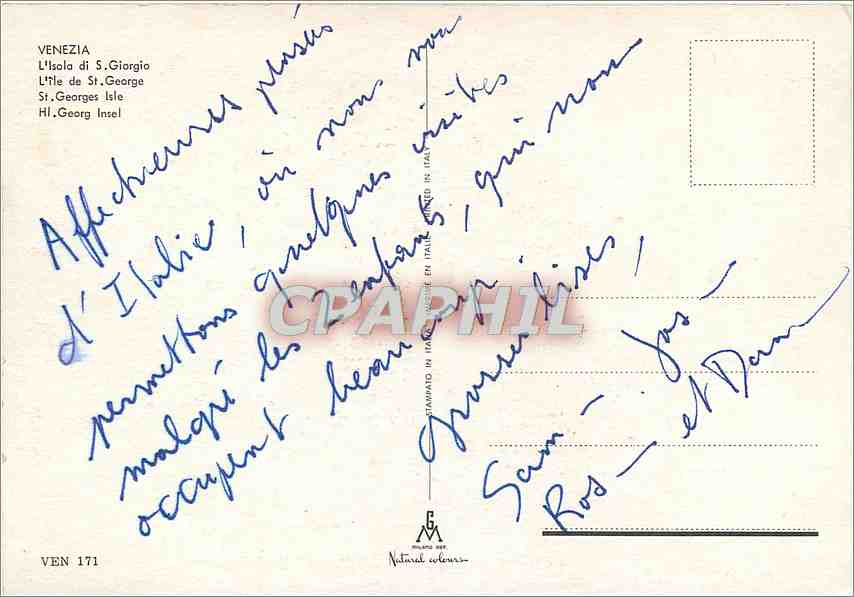 VENEZIA
L'Isola di S. Giorgio
L'île de St. George
St. Georges Isle
Hl. Georg Insel
Affectueuses pensées
d'Italie, où nous nous
permettons quelques visites
malgré les 2 enfants, qui nous
occupent beaucoup.
Grosses bises,
Sam - Jos -
Ros - et
STAMPATO IN ITALIA IMPRIMÉ EN ITALIE PRINTED IN ITALY
CPAPHIL
VEN 171
GM
MILANO
Natural colours